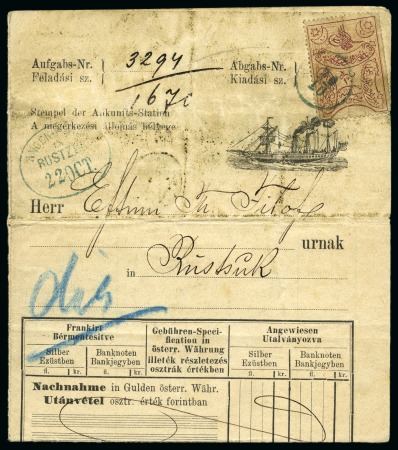 Aufgabs-Nr. 3294 Abgabs-Nr.
Feladási sz. Kiadási sz.
1671
Stempel der Ankunfts-Station
A megérkezési állomás bélyege
RUSTZ
22 OCT.
Herr
urnak
in Rustsuk
Frankirt
Bérmentesitve
Gebühren-Speci-
fication in
österr. Währung
illeték részletezés
osztrák értékben
Angewiesen
Utalványozva
Silber
Ezüstben
Banknoten
Bankjegyben
Silber
Ezüstben
Banknoten
Bankjegyben
fl. kr. fl. kr. fl. kr. fl. kr.
Nachnahme in Gulden österr. Währ.
Utánvétel osztr. érték forintban